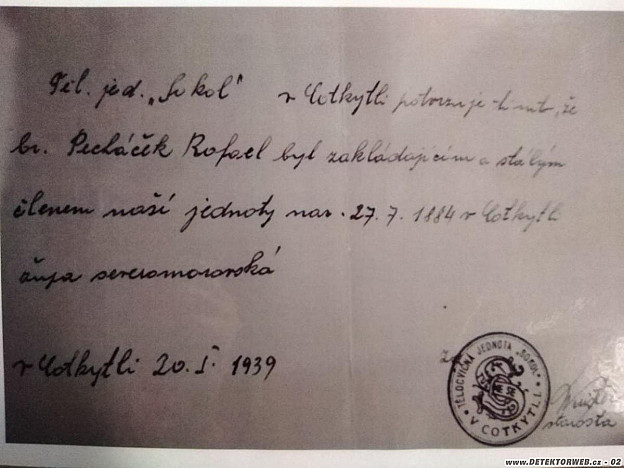 Těl. jed. „Sokol" v Cotkytli potvrzuje tímto, že
br. Pecháček Rafael byl zakládajícím a stálým
členem naší jednoty nar. 27. 7. 1884 v Cotkytli
župa severomoravská
v Cotkytli 20. I. 1939
za
TĚLOCVIČNÁ JEDNOTA „SOKOL"
V COTKYTLI.
starosta
www.DETEKTORWEB.cz - 02